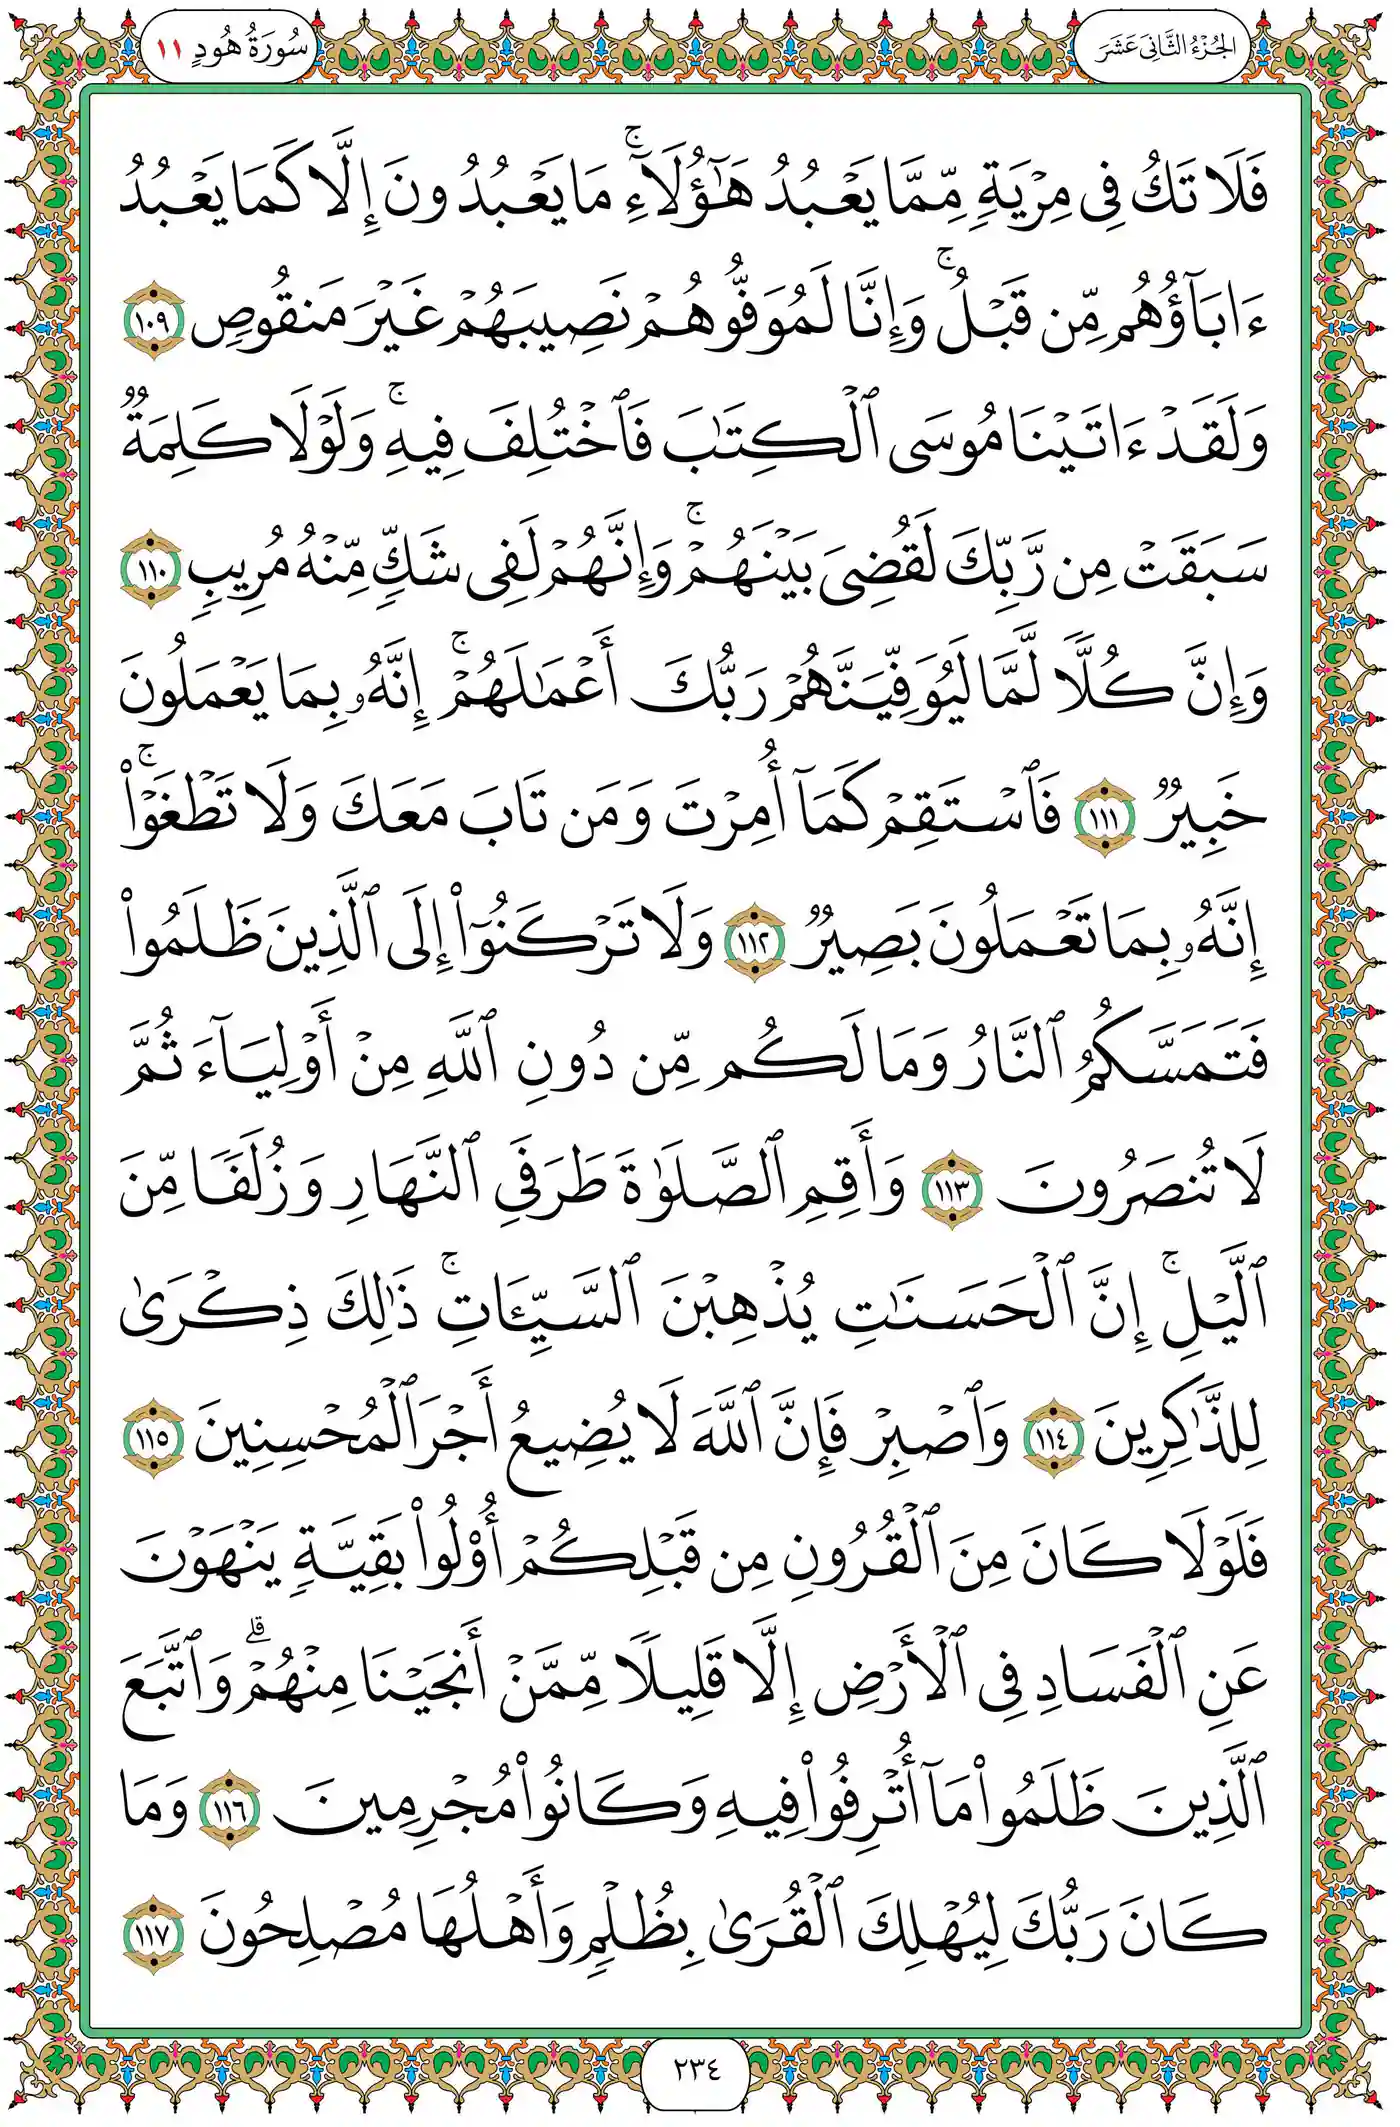 الجُزْءُ الثَّانِيَ عَشَرَ
سُورَةُ هُودٍ ١١
فَلَا تَكُ فِى مِرْيَةٍ مِّمَّا يَعْبُدُ هَٰٓؤُلَآءِ ۚ مَا يَعْبُدُونَ إِلَّا كَمَا يَعْبُدُ
ءَابَآؤُهُم مِّن قَبْلُ ۚ وَإِنَّا لَمُوَفُّوهُمْ نَصِيبَهُمْ غَيْرَ مَنقُوصٍ ١٠٩
وَلَقَدْ ءَاتَيْنَا مُوسَى ٱلْكِتَٰبَ فَٱخْتُلِفَ فِيهِ ۚ وَلَوْلَا كَلِمَةٌ
سَبَقَتْ مِن رَّبِّكَ لَقُضِىَ بَيْنَهُمْ ۚ وَإِنَّهُمْ لَفِى شَكٍّ مِّنْهُ مُرِيبٍ ١١٠
وَإِنَّ كُلًّا لَّمَّا لَيُوَفِّيَنَّهُمْ رَبُّكَ أَعْمَٰلَهُمْ ۚ إِنَّهُۥ بِمَا يَعْمَلُونَ
خَبِيرٌ ١١١ فَٱسْتَقِمْ كَمَآ أُمِرْتَ وَمَن تَابَ مَعَكَ وَلَا تَطْغَوْا۟ ۚ
إِنَّهُۥ بِمَا تَعْمَلُونَ بَصِيرٌ ١١٢ وَلَا تَرْكَنُوٓا۟ إِلَى ٱلَّذِينَ ظَلَمُوا۟
فَتَمَسَّكُمُ ٱلنَّارُ وَمَا لَكُم مِّن دُونِ ٱللَّهِ مِنْ أَوْلِيَآءَ ثُمَّ
لَا تُنصَرُونَ ١١٣ وَأَقِمِ ٱلصَّلَوٰةَ طَرَفَىِ ٱلنَّهَارِ وَزُلَفًا مِّنَ
ٱلَّيْلِ ۚ إِنَّ ٱلْحَسَنَٰتِ يُذْهِبْنَ ٱلسَّيِّـَٔاتِ ۚ ذَٰلِكَ ذِكْرَىٰ
لِلذَّٰكِرِينَ ١١٤ وَٱصْبِرْ فَإِنَّ ٱللَّهَ لَا يُضِيعُ أَجْرَ ٱلْمُحْسِنِينَ ١١٥
فَلَوْلَا كَانَ مِنَ ٱلْقُرُونِ مِن قَبْلِكُمْ أُو۟لُوا۟ بَقِيَّةٍ يَنْهَوْنَ
عَنِ ٱلْفَسَادِ فِى ٱلْأَرْضِ إِلَّا قَلِيلًا مِّمَّنْ أَنجَيْنَا مِنْهُمْ ۗ وَٱتَّبَعَ
ٱلَّذِينَ ظَلَمُوا۟ مَآ أُتْرِفُوا۟ فِيهِ وَكَانُوا۟ مُجْرِمِينَ ١١٦ وَمَا
كَانَ رَبُّكَ لِيُهْلِكَ ٱلْقُرَىٰ بِظُلْمٍ وَأَهْلُهَا مُصْلِحُونَ ١١٧
٢٣٤